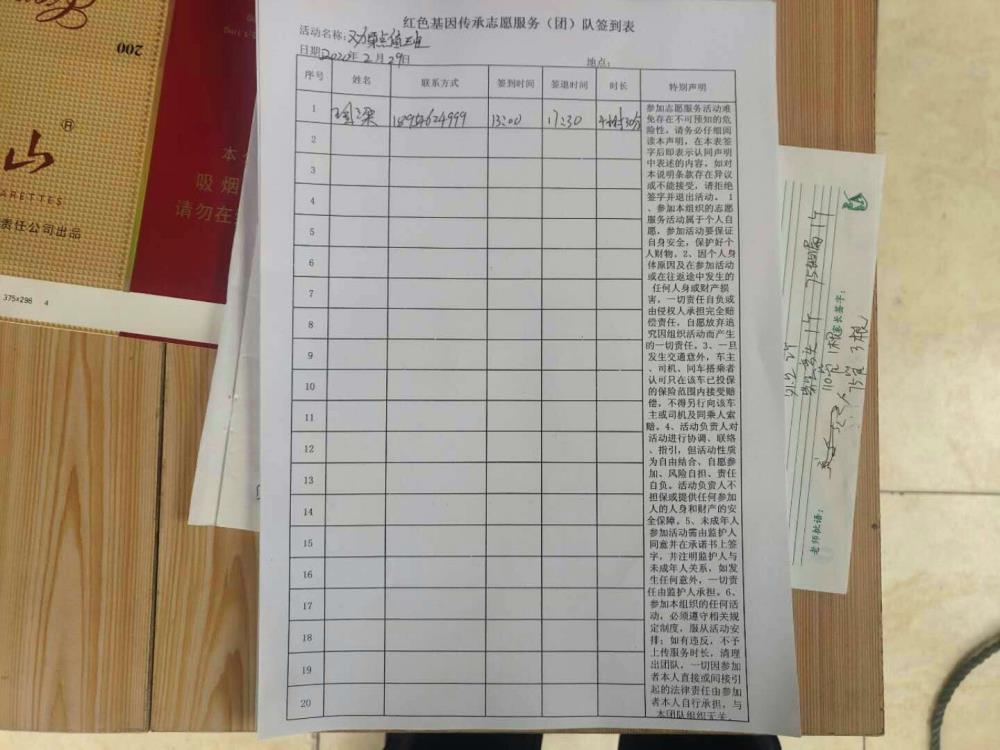 红色基因传承志愿服务（团）队签到表
活动名称：
日期2020年2月29日
地点：
序号 姓名 联系方式 签到时间 签退时间 时长 特别声明
1 13:00 17:30 4小时30分
2
3
4
5
6
7
8
9
10
11
12
13
14
15
16
17
18
19
20
参加志愿服务活动难
免存在不可预知的危
险性，请务必仔细阅
读本声明，在本表签
字后即表示认同声明
中表述的内容，如对
本说明条款存在异议
或不能接受，请拒绝
签字并退出活动。 1
、参加本组织的志愿
服务活动属于个人自
愿，参加活动要保证
自身安全，保护好个
人财物。2、因个人身
体原因及在参加活动
或在往返途中发生的
任何人身或财产损
害，一切责任自负或
由侵权人承担完全赔
偿责任，自愿放弃追
究因组织活动而产生
的一切责任。3、一旦
发生交通意外，车主
、司机、同车搭乘者
认可只在该车已投保
的保险范围内接受赔
偿，不得另行向该车
主或司机及同乘人索
赔。4、活动负责人对
活动进行协调、联络
、指引，但活动性质
为自由结合、自愿参
加、风险自担、责任
自负。活动负责人不
担保或提供任何参加
人的人身和财产的安
全保障。5、未成年人
参加活动需由监护人
同意并在承诺书上签
字，并注明监护人与
未成年人关系，如发
生任何意外，一切责
任由监护人承担。6、
参加本组织的任何活
动，必须遵守相关规
定制度，服从活动安
排；如有违反，不予
上传服务时长，清理
出团队，一切因参加
者本人直接或间接引
起的法律责任由参加
者本人自行承担，与
本团队组织无关。
200
山
®
ARETTES
责任公司出品
375×298 4
本
吸烟
请勿在
家长签字：
老师批语：